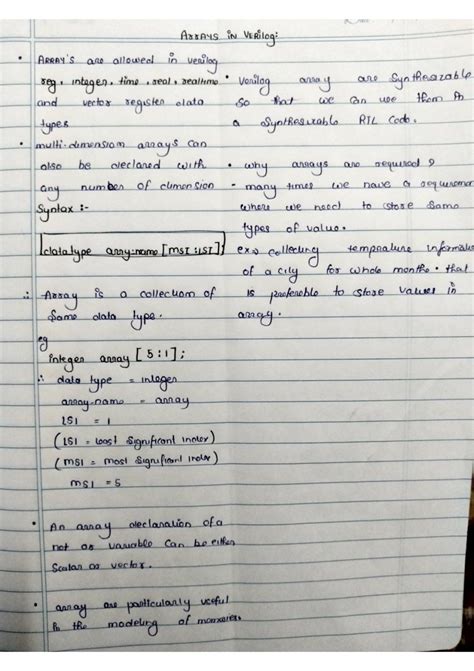 ARRAYS IN VERILOG:
• ARRAY's are allowed in verilog
reg, integer, time, real, realtime
and vector register data
types
• multi-dimension arrays can
also be declared with
any number of dimension
Syntax :-
datatype array-name [MSI : LSI];
∴ Array is a collection of
Same data type.
eg
integer array [5:1];
∴ data type = integer
array-name = array
LSI = 1
(LSI = Least Significant Index)
(MSI = Most Significant Index)
MSI = 5
• An array declaration of a
net or variable can be either
Scalar or vector.
• array are particularly useful
in the modeling of
• Verilog array are Synthesizable
so that we can use them in
a Synthesizable RTL Code.
• why arrays are required ?
- many times we have a requiremen
where we need to store Same
types of value.
ex:> collecting temprature informatio
of a city for whole months. that
is preferable to store values in
array.